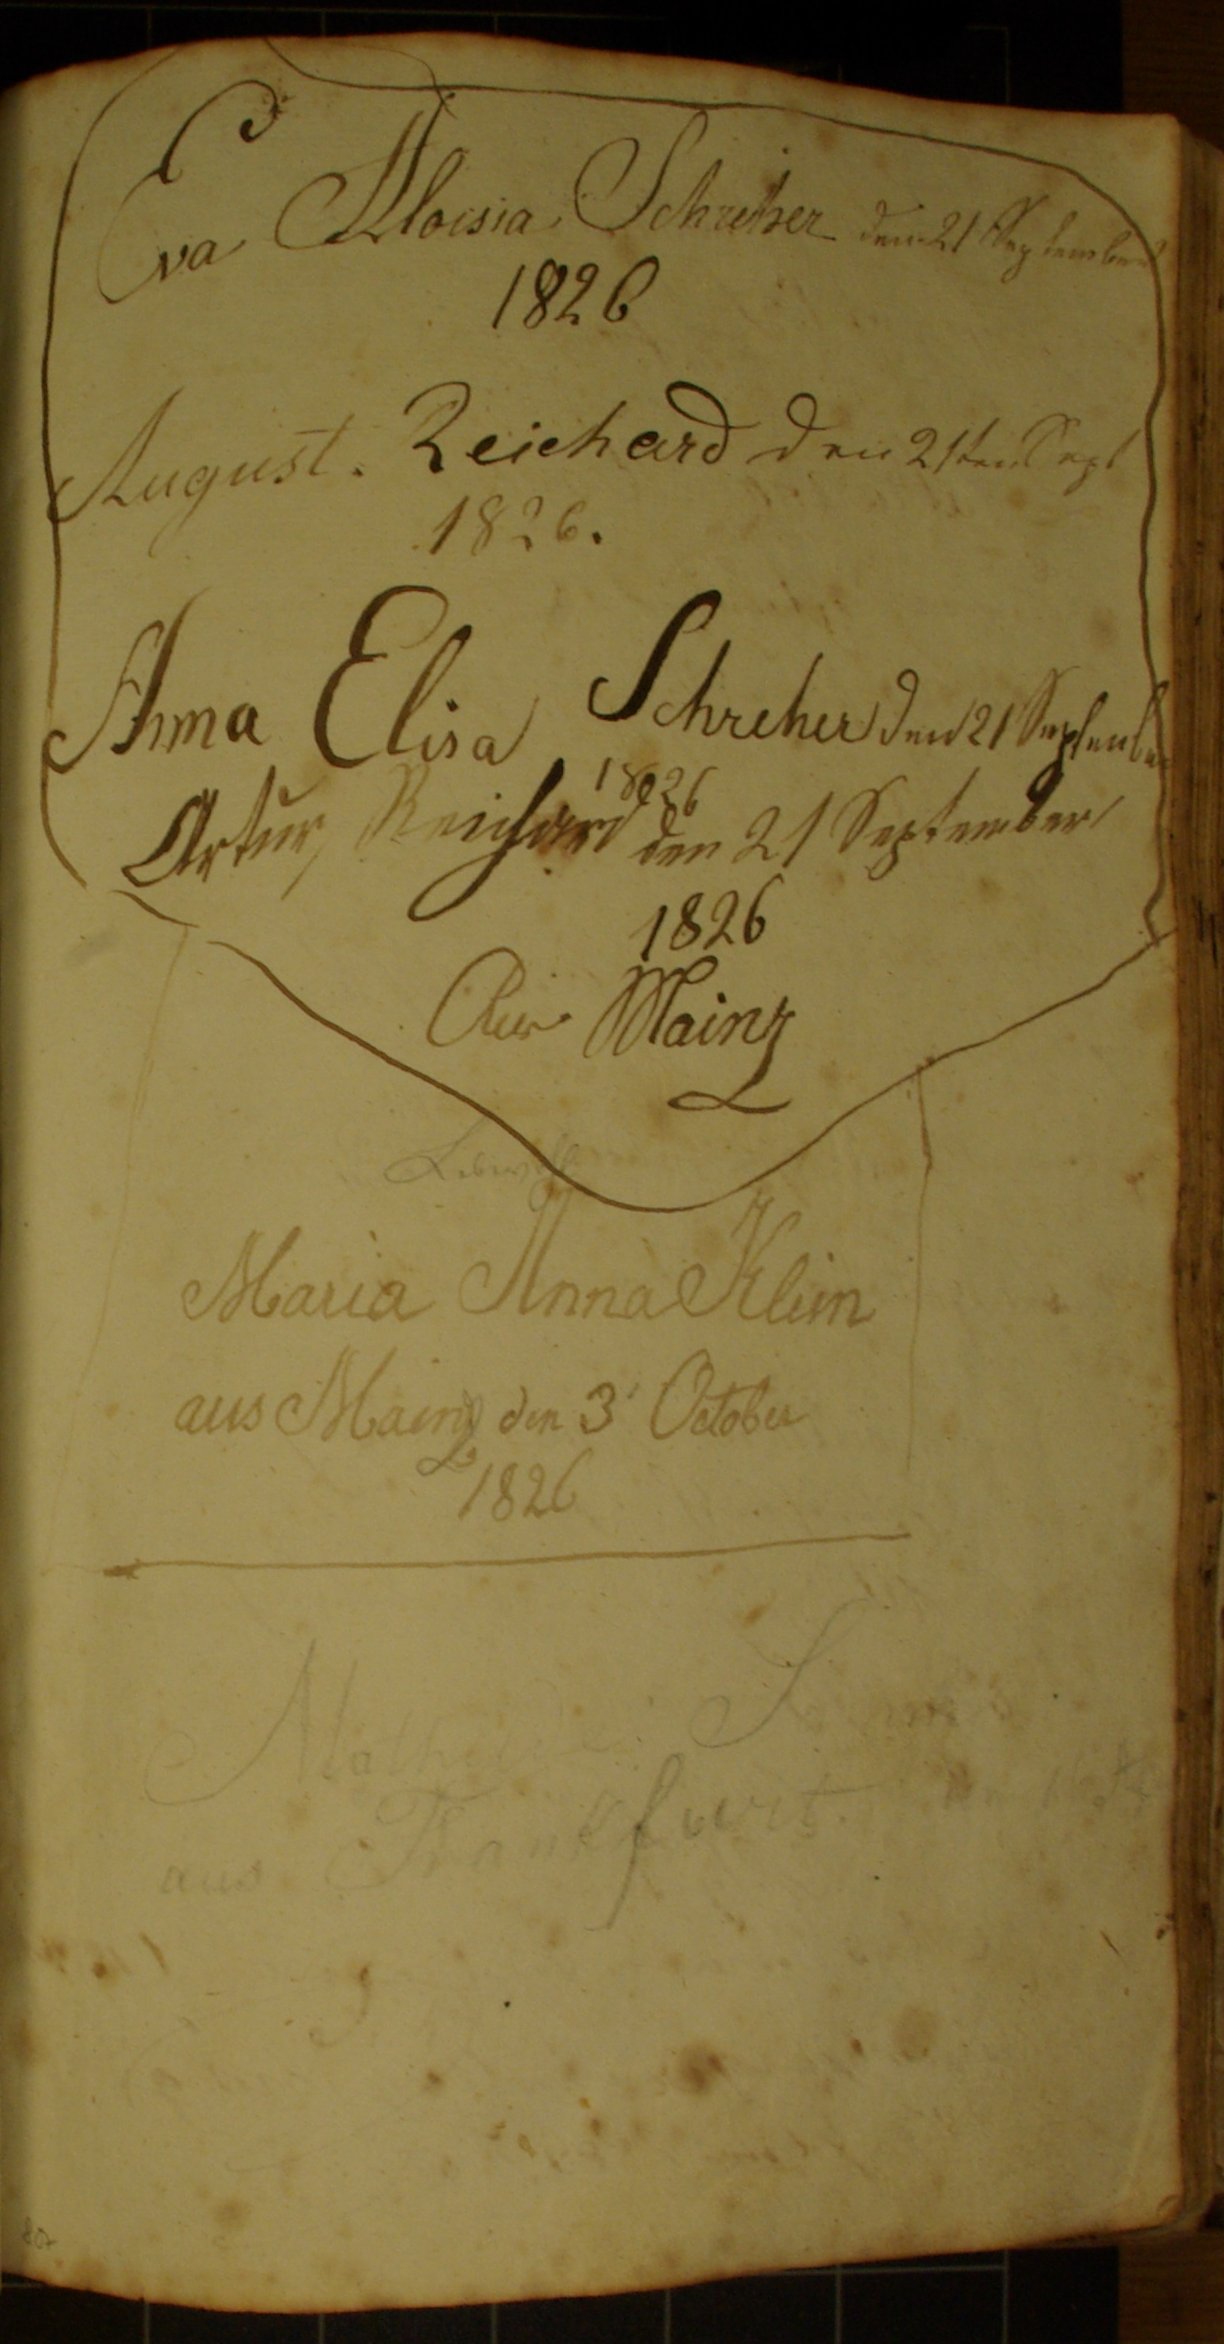 Eva Aloisia Schreher den 21 September
1826
August. Reichard den 21ten Sept
1826.
Anna Elisa Schreher den 21 September
1826
Artur Reichard den 21 September
1826
Aus Mainz
Lebewohl
Maria Anna Klein
aus Mainz den 3 October
1826
aus Frankfurt